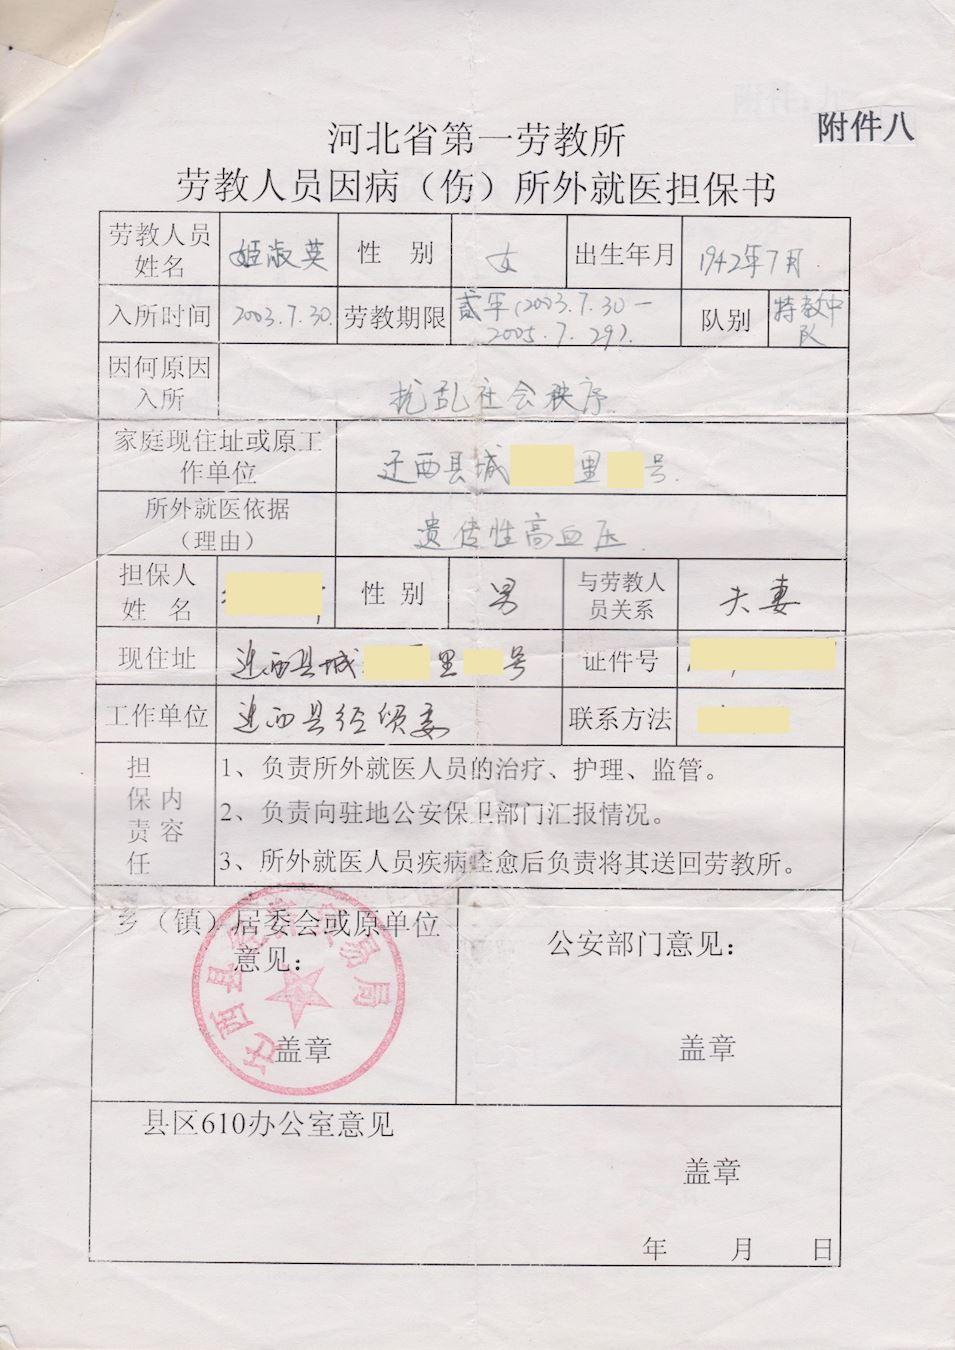 附件八
河北省第一劳教所
劳教人员因病（伤）所外就医担保书
劳教人员姓名 姬淑英 性 别 女 出生年月 1942年7月
入所时间 2003.7.30. 劳教期限 贰年(2003.7.30－2005.7.29). 队别 特教中队
因何原因入所 扰乱社会秩序.
家庭现住址或原工作单位 迁西县城 里 号.
所外就医依据（理由） 遗传性高血压.
担保人姓 名 性 别 男 与劳教人员关系 夫妻
现住址 迁西县城 里 号 证件号
工作单位 迁西县经贸委 联系方法
担保责任内容
1、负责所外就医人员的治疗、护理、监管。
2、负责向驻地公安保卫部门汇报情况。
3、所外就医人员疾病痊愈后负责将其送回劳教所。
乡（镇）居委会或原单位意见：
盖章
公安部门意见：
盖章
县区610办公室意见
盖章
年 月 日